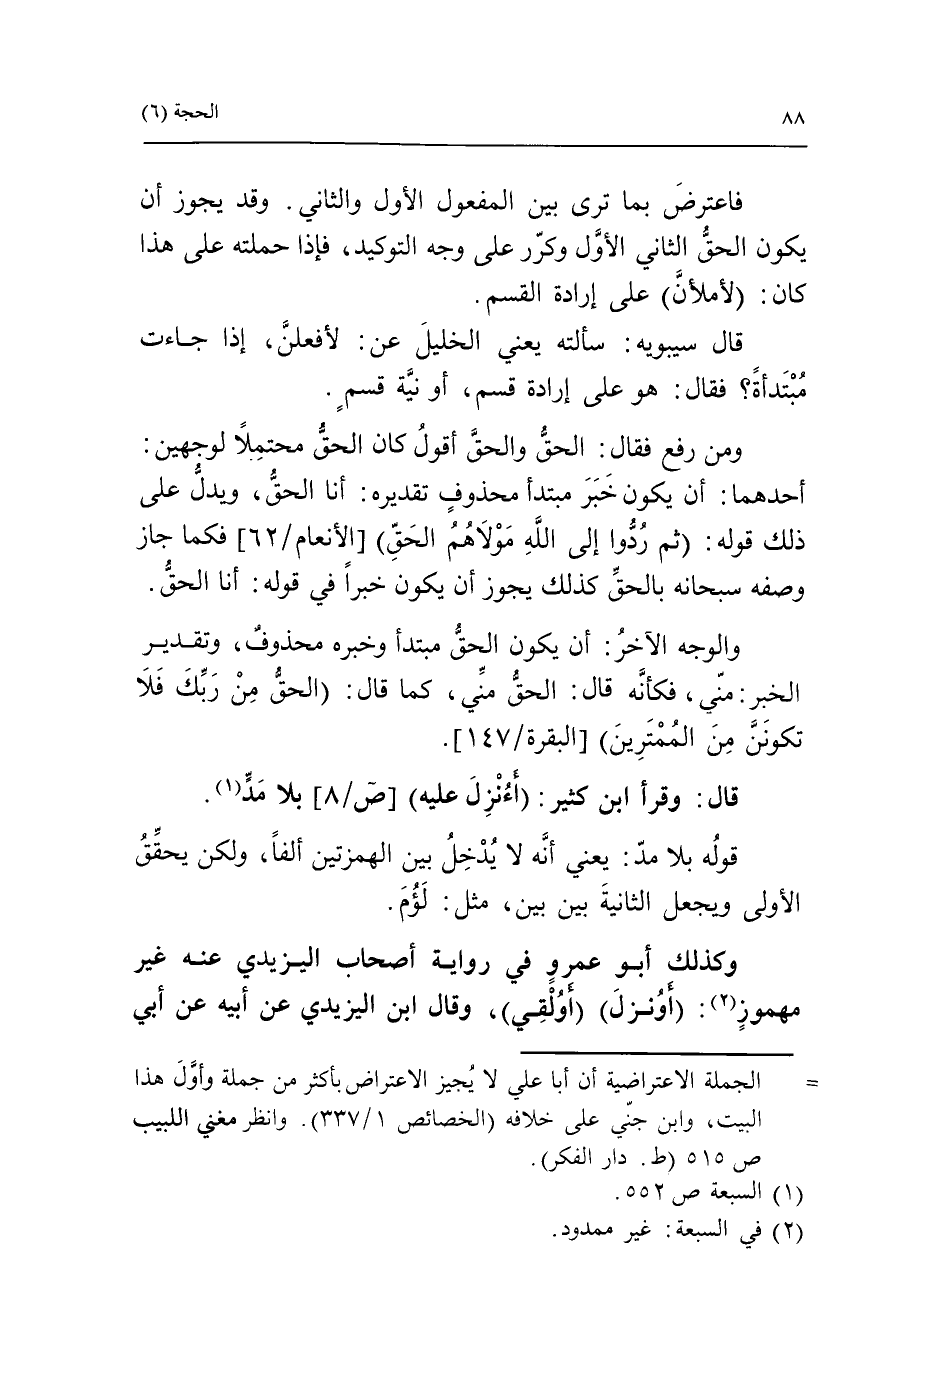 ٨٨
الحجة (٦)
فاعترضَ بما ترى بين المفعول الأول والثاني. وقد يجوز أن
يكون الحقُّ الثاني الأوَّل وكرّر على وجه التوكيد، فإذا حملته على هذا
كان: (لأملأنَّ) على إرادة القسم.
قال سيبويه: سألته يعني الخليلَ عن: لأفعلنَّ، إذا جاءت
مُبْتَدأةً؟ فقال: هو على إرادة قسم، أو نيَّة قسمٍ.
ومن رفع فقال: الحقُّ والحقَّ أقولُ كان الحقُّ محتمِلاً لوجهين:
أحدهما: أن يكون خَبَرَ مبتدأ محذوفٍ تقديره: أنا الحقُّ، ويدلُّ على
ذلك قوله: (ثم رُدُّوا إلى اللَّهِ مَوْلَاهُمُ الحَقِّ) [الأنعام/٦٢] فكما جاز
وصفه سبحانه بالحقِّ كذلك يجوز أن يكون خبراً في قوله: أنا الحقُّ.
والوجه الآخرُ: أن يكون الحقُّ مبتدأ وخبره محذوفٌ، وتقدير
الخبر: منّي، فكأنَّه قال: الحقُّ منِّي، كما قال: (الحقُّ مِنْ رَبِّكَ فَلَا
تكونَنَّ مِنَ المُمْتَرِينَ) [البقرة/١٤٧].
قال: وقرأ ابن كثير: (أَءُنْزِلَ عليه) [صَ/٨] بلا مَدٍّ(١).
قولُه بلا مدّ: يعني أنَّه لا يُدْخِلُ بين الهمزتين ألفاً، ولكن يحقِّقُ
الأولى ويجعل الثانيةَ بين بين، مثل: لَؤُمَ.
وكذلك أبو عمروٍ في رواية أصحاب اليزيدي عنه غير
مهموزٍ(٢): (أَوُنزلَ) (أَوُلْقِي)، وقال ابن اليزيدي عن أبيه عن أبي
= الجملة الاعتراضية أن أبا علي لا يُجيز الاعتراض بأكثر من جملة وأوَّلَ هذا
البيت، وابن جنّي على خلافه (الخصائص ٣٣٧/١). وانظر مغني اللبيب
ص ٥١٥ (ط. دار الفكر).
(١) السبعة ص ٥٥٢.
(٢) في السبعة: غير ممدود.